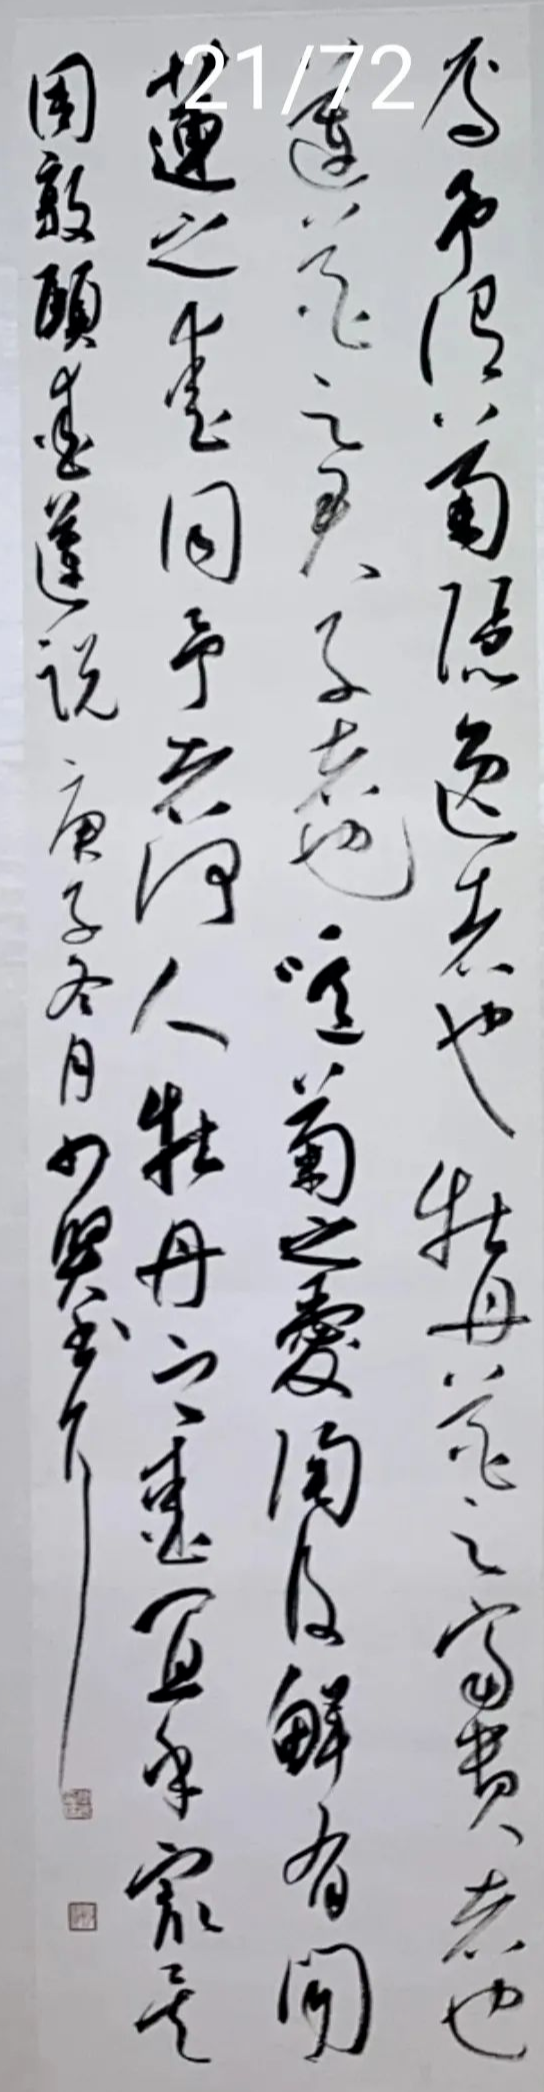 21/72
焉予谓菊隐逸者也牡丹花之富贵者也
蓮花之君子者也噫菊之愛陶后鮮有闻
蓮之愛同予者何人牡丹之愛宜乎衆矣
周敦頤愛蓮说庚子冬月